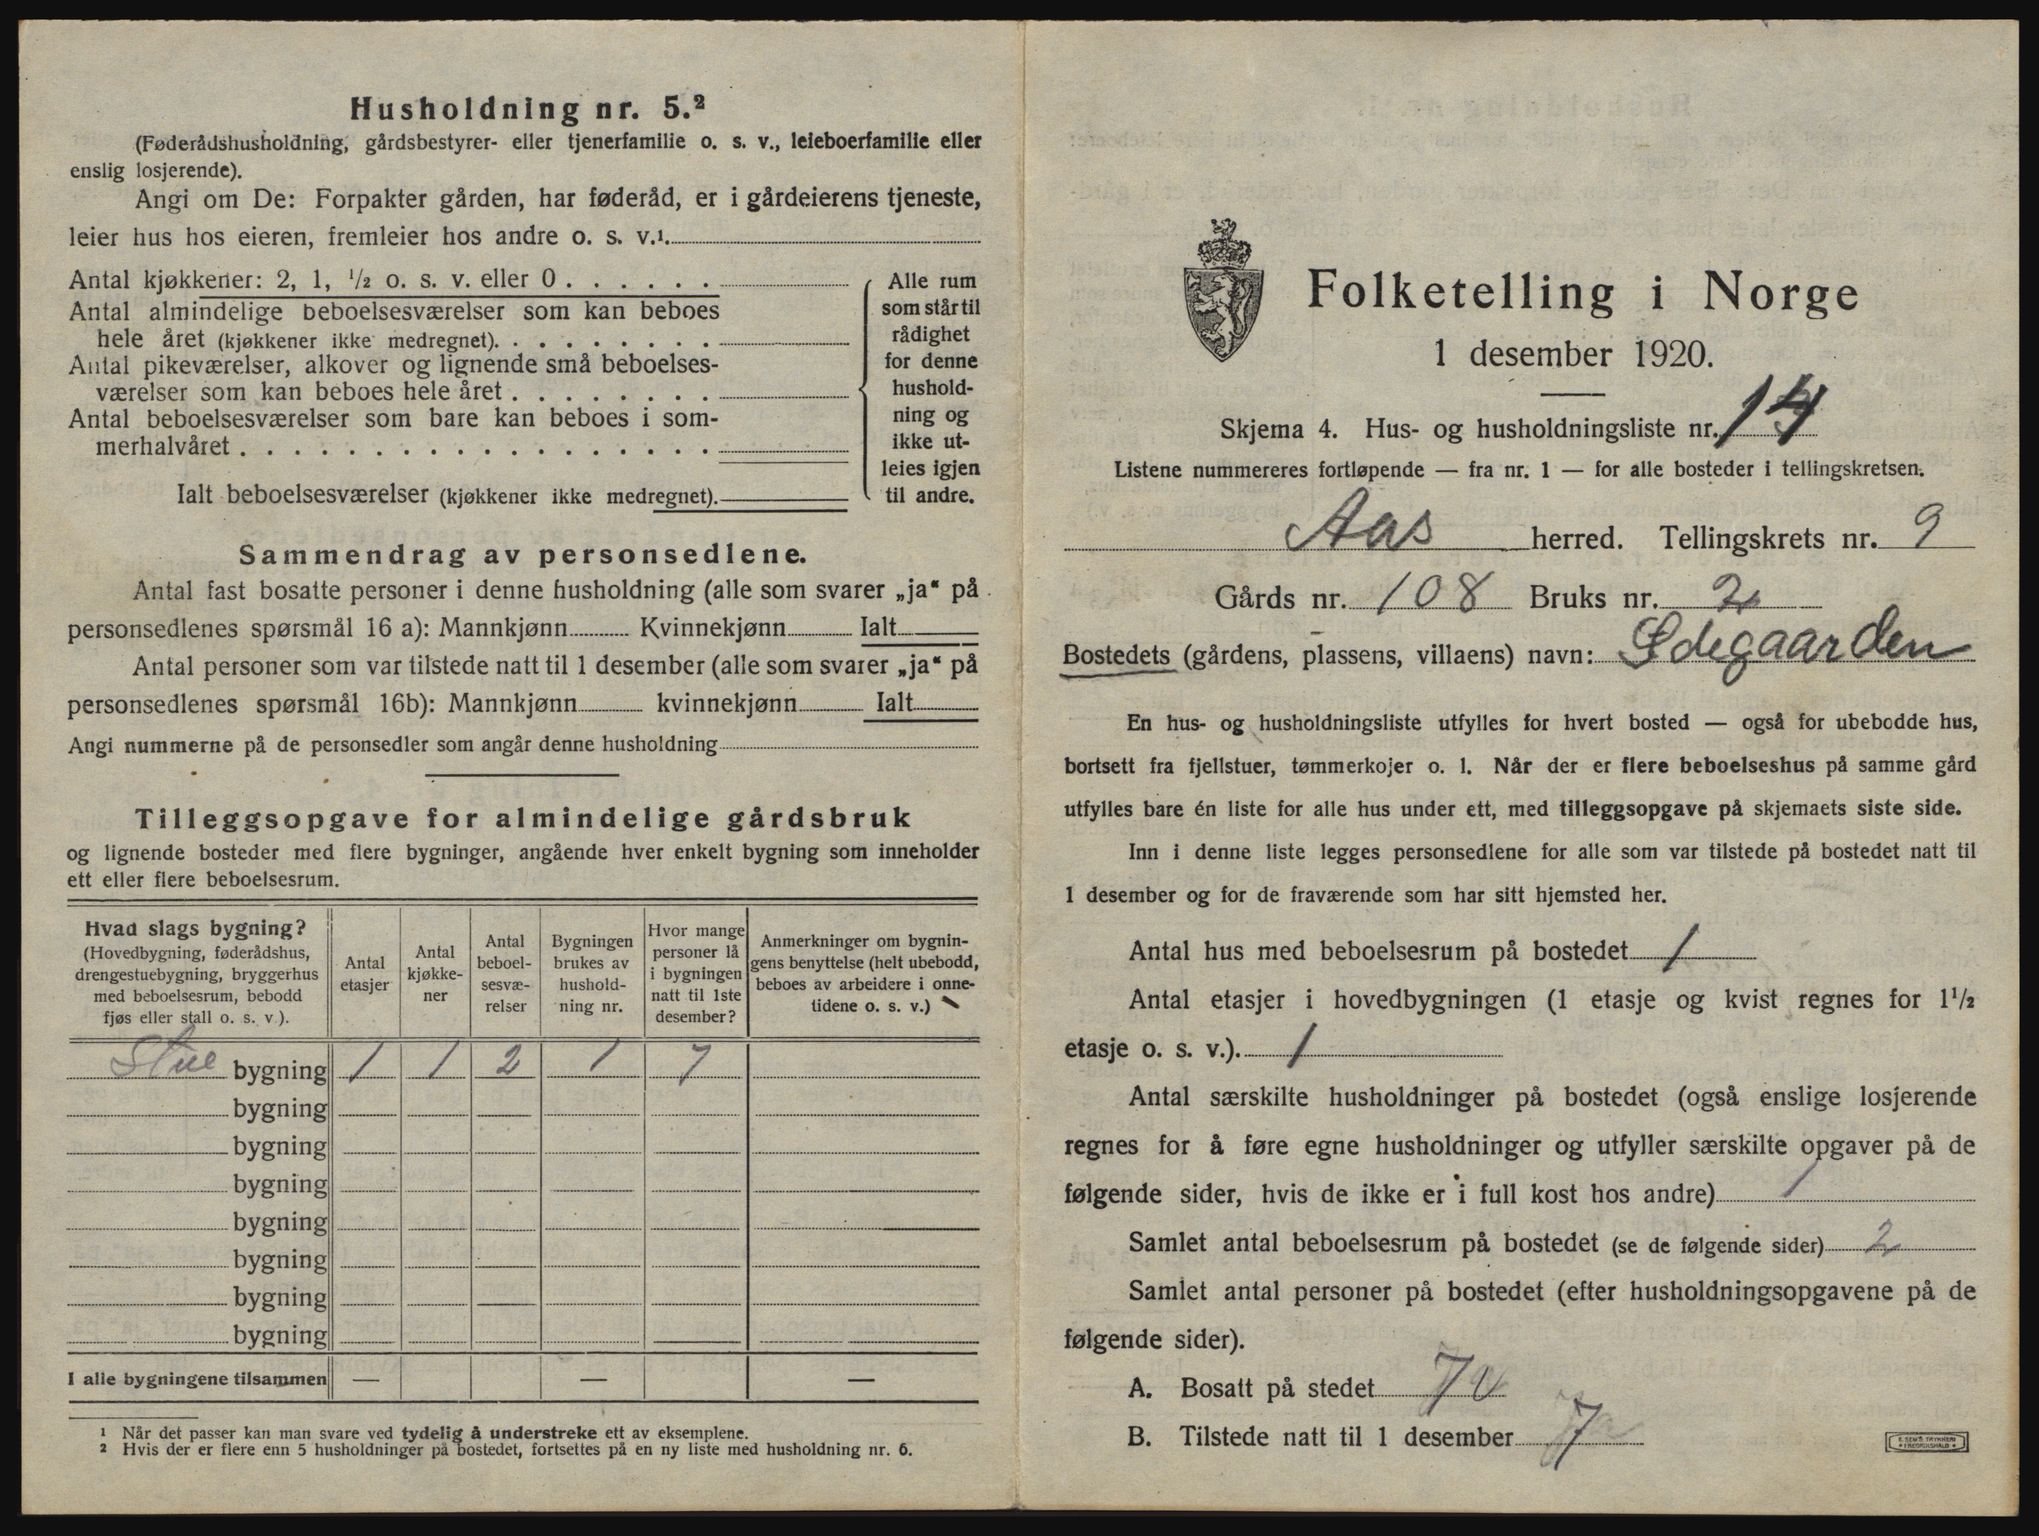 Husholdning nr. 5.²
(Føderådshusholdning, gårdsbestyrer- eller tjenerfamilie o. s. v., leieboerfamilie eller
enslig losjerende).
Angi om De: Forpakter gården, har føderåd, er i gårdeierens tjeneste,
leier hus hos eieren, fremleier hos andre o. s. v.¹
Antal kjøkkener: 2, 1, ½ o. s. v. eller 0
Antal almindelige beboelsesværelser som kan beboes
hele året (kjøkkener ikke medregnet)
Antal pikeværelser, alkover og lignende små beboelses-
værelser som kan beboes hele året
Antal beboelsesværelser som bare kan beboes i som-
merhalvåret
Ialt beboelsesværelser (kjøkkener ikke medregnet)
Alle rum
som står til
rådighet
for denne
hushold-
ning og
ikke ut-
leies igjen
til andre.
Sammendrag av personsedlene.
Antal fast bosatte personer i denne husholdning (alle som svarer „ja“ på
personsedlenes spørsmål 16 a): Mannkjønn Kvinnekjønn Ialt
Antal personer som var tilstede natt til 1 desember (alle som svarer „ja“ på
personsedlenes spørsmål 16b): Mannkjønn kvinnekjønn Ialt
Angi nummerne på de personsedler som angår denne husholdning
Tilleggsopgave for almindelige gårdsbruk
og lignende bosteder med flere bygninger, angående hver enkelt bygning som inneholder
ett eller flere beboelsesrum.
Hvad slags bygning?
(Hovedbygning, føderådshus,
drengestuebygning, bryggerhus
med beboelsesrum, bebodd
fjøs eller stall o. s. v.).
Antal
etasjer
Antal
kjøkke-
ner
Antal
beboel-
sesvæ-
relser
Bygningen
brukes av
hushold-
ning nr.
Hvor mange
personer lå
i bygningen
natt til 1ste
desember?
Anmerkninger om bygnin-
gens benyttelse (helt ubebodd,
beboes av arbeidere i onne-
tidene o. s. v.)
Stue bygning 1 1 2 1 7
bygning
bygning
bygning
bygning
bygning
bygning
bygning
I alle bygningene tilsammen — — —
¹ Når det passer kan man svare ved tydelig å understreke ett av eksemplene.
² Hvis der er flere enn 5 husholdninger på bostedet, fortsettes på en ny liste med husholdning nr. 6.
Folketelling i Norge
1 desember 1920.
Skjema 4. Hus- og husholdningsliste nr. 14
Listene nummereres fortløpende — fra nr. 1 — for alle bosteder i tellingskretsen.
Aas herred. Tellingskrets nr. 9
Gårds nr. 108 Bruks nr. 2
Bostedets (gårdens, plassens, villaens) navn: Ødegaarden
En hus- og husholdningsliste utfylles for hvert bosted — også for ubebodde hus,
bortsett fra fjellstuer, tømmerkojer o. l. Når der er flere beboelseshus på samme gård
utfylles bare én liste for alle hus under ett, med tilleggsopgave på skjemaets siste side.
Inn i denne liste legges personsedlene for alle som var tilstede på bostedet natt til
1 desember og for de fraværende som har sitt hjemsted her.
Antal hus med beboelsesrum på bostedet 1
Antal etasjer i hovedbygningen (1 etasje og kvist regnes for 1½
etasje o. s. v.). 1
Antal særskilte husholdninger på bostedet (også enslige losjerende
regnes for å føre egne husholdninger og utfyller særskilte opgaver på de
følgende sider, hvis de ikke er i full kost hos andre) 1
Samlet antal beboelsesrum på bostedet (se de følgende sider) 2
Samlet antal personer på bostedet (efter husholdningsopgavene på de
følgende sider).
A. Bosatt på stedet 7 v
B. Tilstede natt til 1 desember 7
E. SEM'S TRYKKERI
FREDRIKSHALD